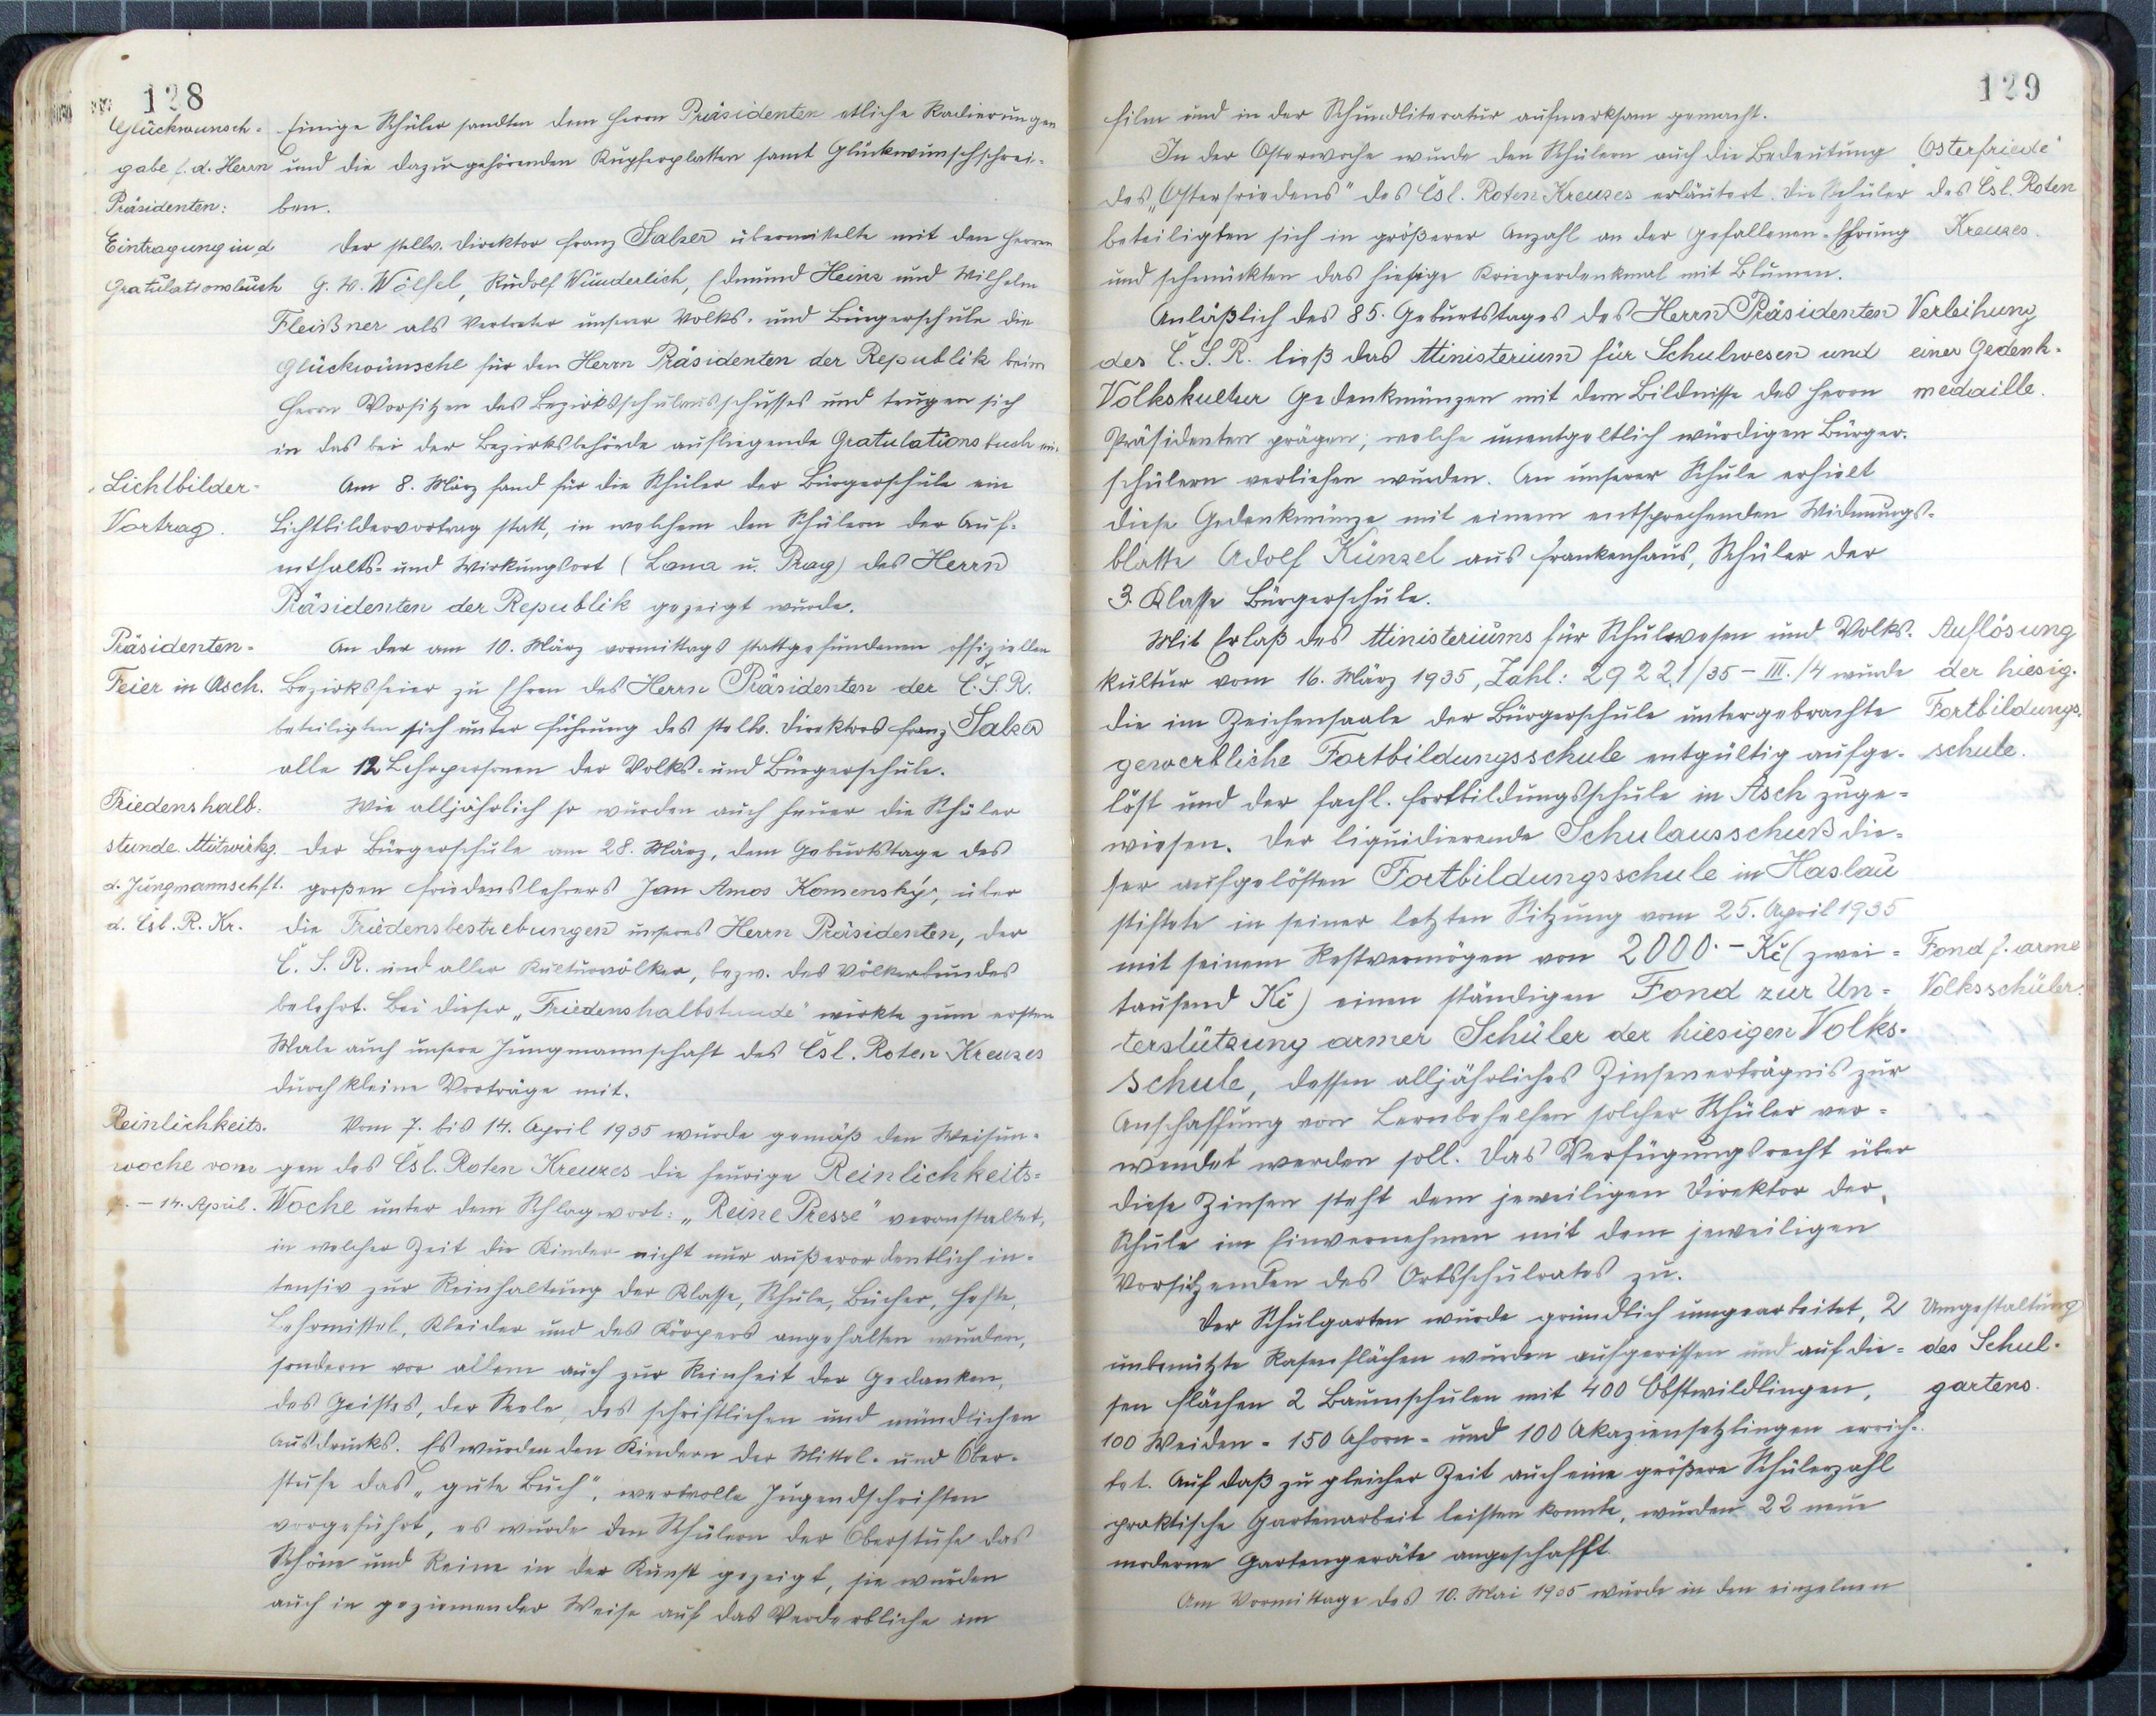 128
Glückwunsch-
gabe f. d. Herrn
Präsidenten:
Einige Schüler sandten dem Herrn Präsidenten etliche Radierungen
und die dazugehörenden Kupferplatten samt Glückwunschschrei-
ben.
Eintragung in d.
Gratulationsbuch
Der stellv. Direktor Franz Salzer übermittelte mit den Herren
G. W. Wölfel, Rudolf Wunderlich, Edmund Heinz und Wilhelm
Fleißner als Vertreter unserer Volks- und Bürgerschule die
Glückwünsche für den Herrn Präsidenten der Republik beim
Herrn Vorsitzen des Bezirksschulausschusses und trugen sich
in das bei der Bezirksbehörde aufliegende Gratulationsbuch ein.
Lichtbilder-
Vortrag.
Am 8. März fand für die Schüler der Bürgerschule ein
Lichtbildervortrag statt, in welchem den Schülern der Auf-
enthalts- und Wirkungsort (Lana u. Prag) des Herrn
Präsidenten der Republik gezeigt wurde.
Präsidenten-
Feier in Asch.
An der am 10. März vormittags stattgefundenen offiziellen
Bezirksfeier zu Ehren des Herrn Präsidenten der Č.S.R.
beteiligten sich unter Führung des stellv. Direktors Franz Salzer
alle 12 Lehrpersonen der Volks- und Bürgerschule.
Friedenshalb-
stunde. Mitwirkg.
d. Jungmannschft.
d. Čsl. R. Kr.
Wie alljährlich so wurden auch heuer die Schüler
der Bürgerschule am 28. März, dem Geburtstage des
großen Friedenslehrers Jan Amos Komenský, über
die Friedensbestrebungen unseres Herrn Präsidenten, der
Č.S.R. und aller Kulturvölker, bezw. des Völkerbundes
belehrt. Bei dieser „Friedenshalbstunde" wirkte zum ersten
Male auch unsere Jungmannschaft des Čsl. Roten Kreuzes
durch kleine Vorträge mit.
Reinlichkeits-
woche vom
7. - 14. April.
Vom 7. bis 14. April 1935 wurde gemäß den Weisun-
gen des Čsl. Roten Kreuzes die heurige Reinlichkeits-
Woche unter dem Schlagwort: „Reine Presse" veranstaltet,
in welcher Zeit die Kinder nicht nur außerordentlich in-
tensiv zur Reinhaltung der Klasse, Schule, Bücher, Hefte,
Lehrmittel, Kleider und des Körpers angehalten wurden,
sondern vor allem auch zur Reinheit der Gedanken,
des Geistes, der Seele, des schriftlichen und mündlichen
Ausdrucks. Es wurden den Kindern der Mittel- und Ober-
stufe das „gute Buch", wertvolle Jugendschriften
vorgeführt, es wurde den Schülern der Oberstufe das
Schöne und Reine in der Kunst gezeigt, sie wurden
auch in geziemender Weise auf das Verderbliche im
129
Film und in der Schundliteratur aufmerksam gemacht.
In der Osterwoche wurde den Schülern auch die Bedeutung
des „Osterfriedens" des Čsl. Roten Kreuzes erläutert. Die Schüler
beteiligten sich in größerer Anzahl an der Gefallenen-Ehrung
und schmückten das hiesige Kriegerdenkmal mit Blumen.
„Osterfriede"
des Čsl. Roten
Kreuzes.
Anläßlich des 85. Geburtstages des Herrn Präsidenten
der Č.S.R. ließ das Ministerium für Schulwesen und
Volkskultur Gedenkmünzen mit dem Bildnisse des Herrn
Präsidenten prägen; welche unentgeltlich würdigen Bürger-
schülern verliehen wurden. An unserer Schule erhielt
diese Gedenkmünze mit einem entsprechenden Widmungs-
blatte Adolf Künzel aus Frankenhaus, Schüler der
3. Klasse Bürgerschule.
Verleihung
einer Gedenk-
medaille.
Mit Erlaß des Ministeriums für Schulwesen und Volks-
kultur vom 16. März 1935, Zahl: 29221/35 - III./4 wurde
die im Zeichensaale der Bürgerschule untergebrachte
gewerbliche Fortbildungsschule entgültig aufge-
löst und der fachl. Fortbildungsschule in Asch zuge-
wiesen. Der liquidierende Schulausschuß die-
ser aufgelösten Fortbildungsschule in Haslau
stiftete in seiner letzten Sitzung vom 25. April 1935
mit seinem Restvermögen von 2000·- Kč (zwei-
tausend Kč) einen ständigen Fond zur Un-
terstützung armer Schüler der hiesigen Volks-
schule, dessen alljährliches Zinsenerträgnis zur
Anschaffung von Lernbehelfen solcher Schüler ver-
wendet werden soll. Das Verfügungsrecht über
diese Zinsen steht dem jeweiligen Direktor der
Schule im Einvernehmen mit dem jeweiligen
Vorsitzenden des Ortsschulrates zu.
Auflösung
der hiesig.
Fortbildungs-
schule.
Fond f. arme
Volksschüler.
Der Schulgarten wurde gründlich umgearbeitet, 2
unbenützte Rasenflächen wurden aufgerissen und auf die-
sen Flächen 2 Baumschulen mit 400 Obstwildlingen,
100 Weiden- 150 Ahorn- und 100 Akaziensetzlingen errich-
tet. Auf daß zu gleicher Zeit auch eine größere Schülerzahl
praktische Gartenarbeit leisten konnte, wurden 22 neue
moderne Gartengeräte angeschafft.
Umgestaltung
des Schul-
gartens.
Am Vormittage des 10. Mai 1935 wurde in den einzelnen